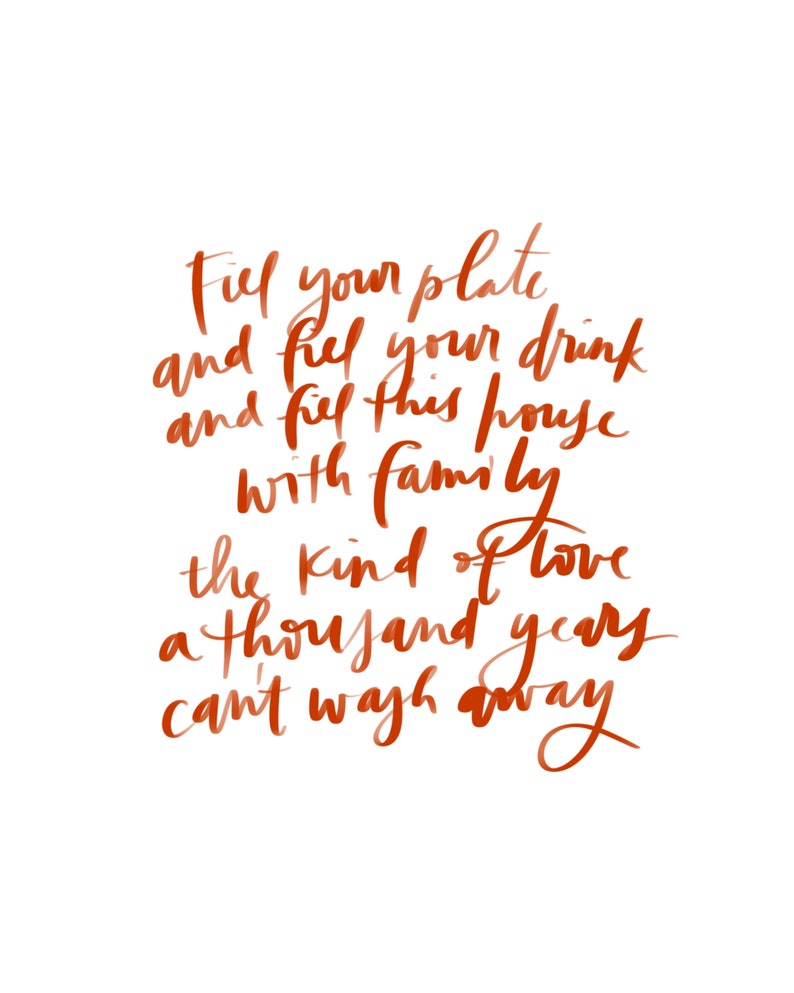 Fill your plate
and fill your drink
and fill this house
with family
the kind of love
a thousand years
can't wash away